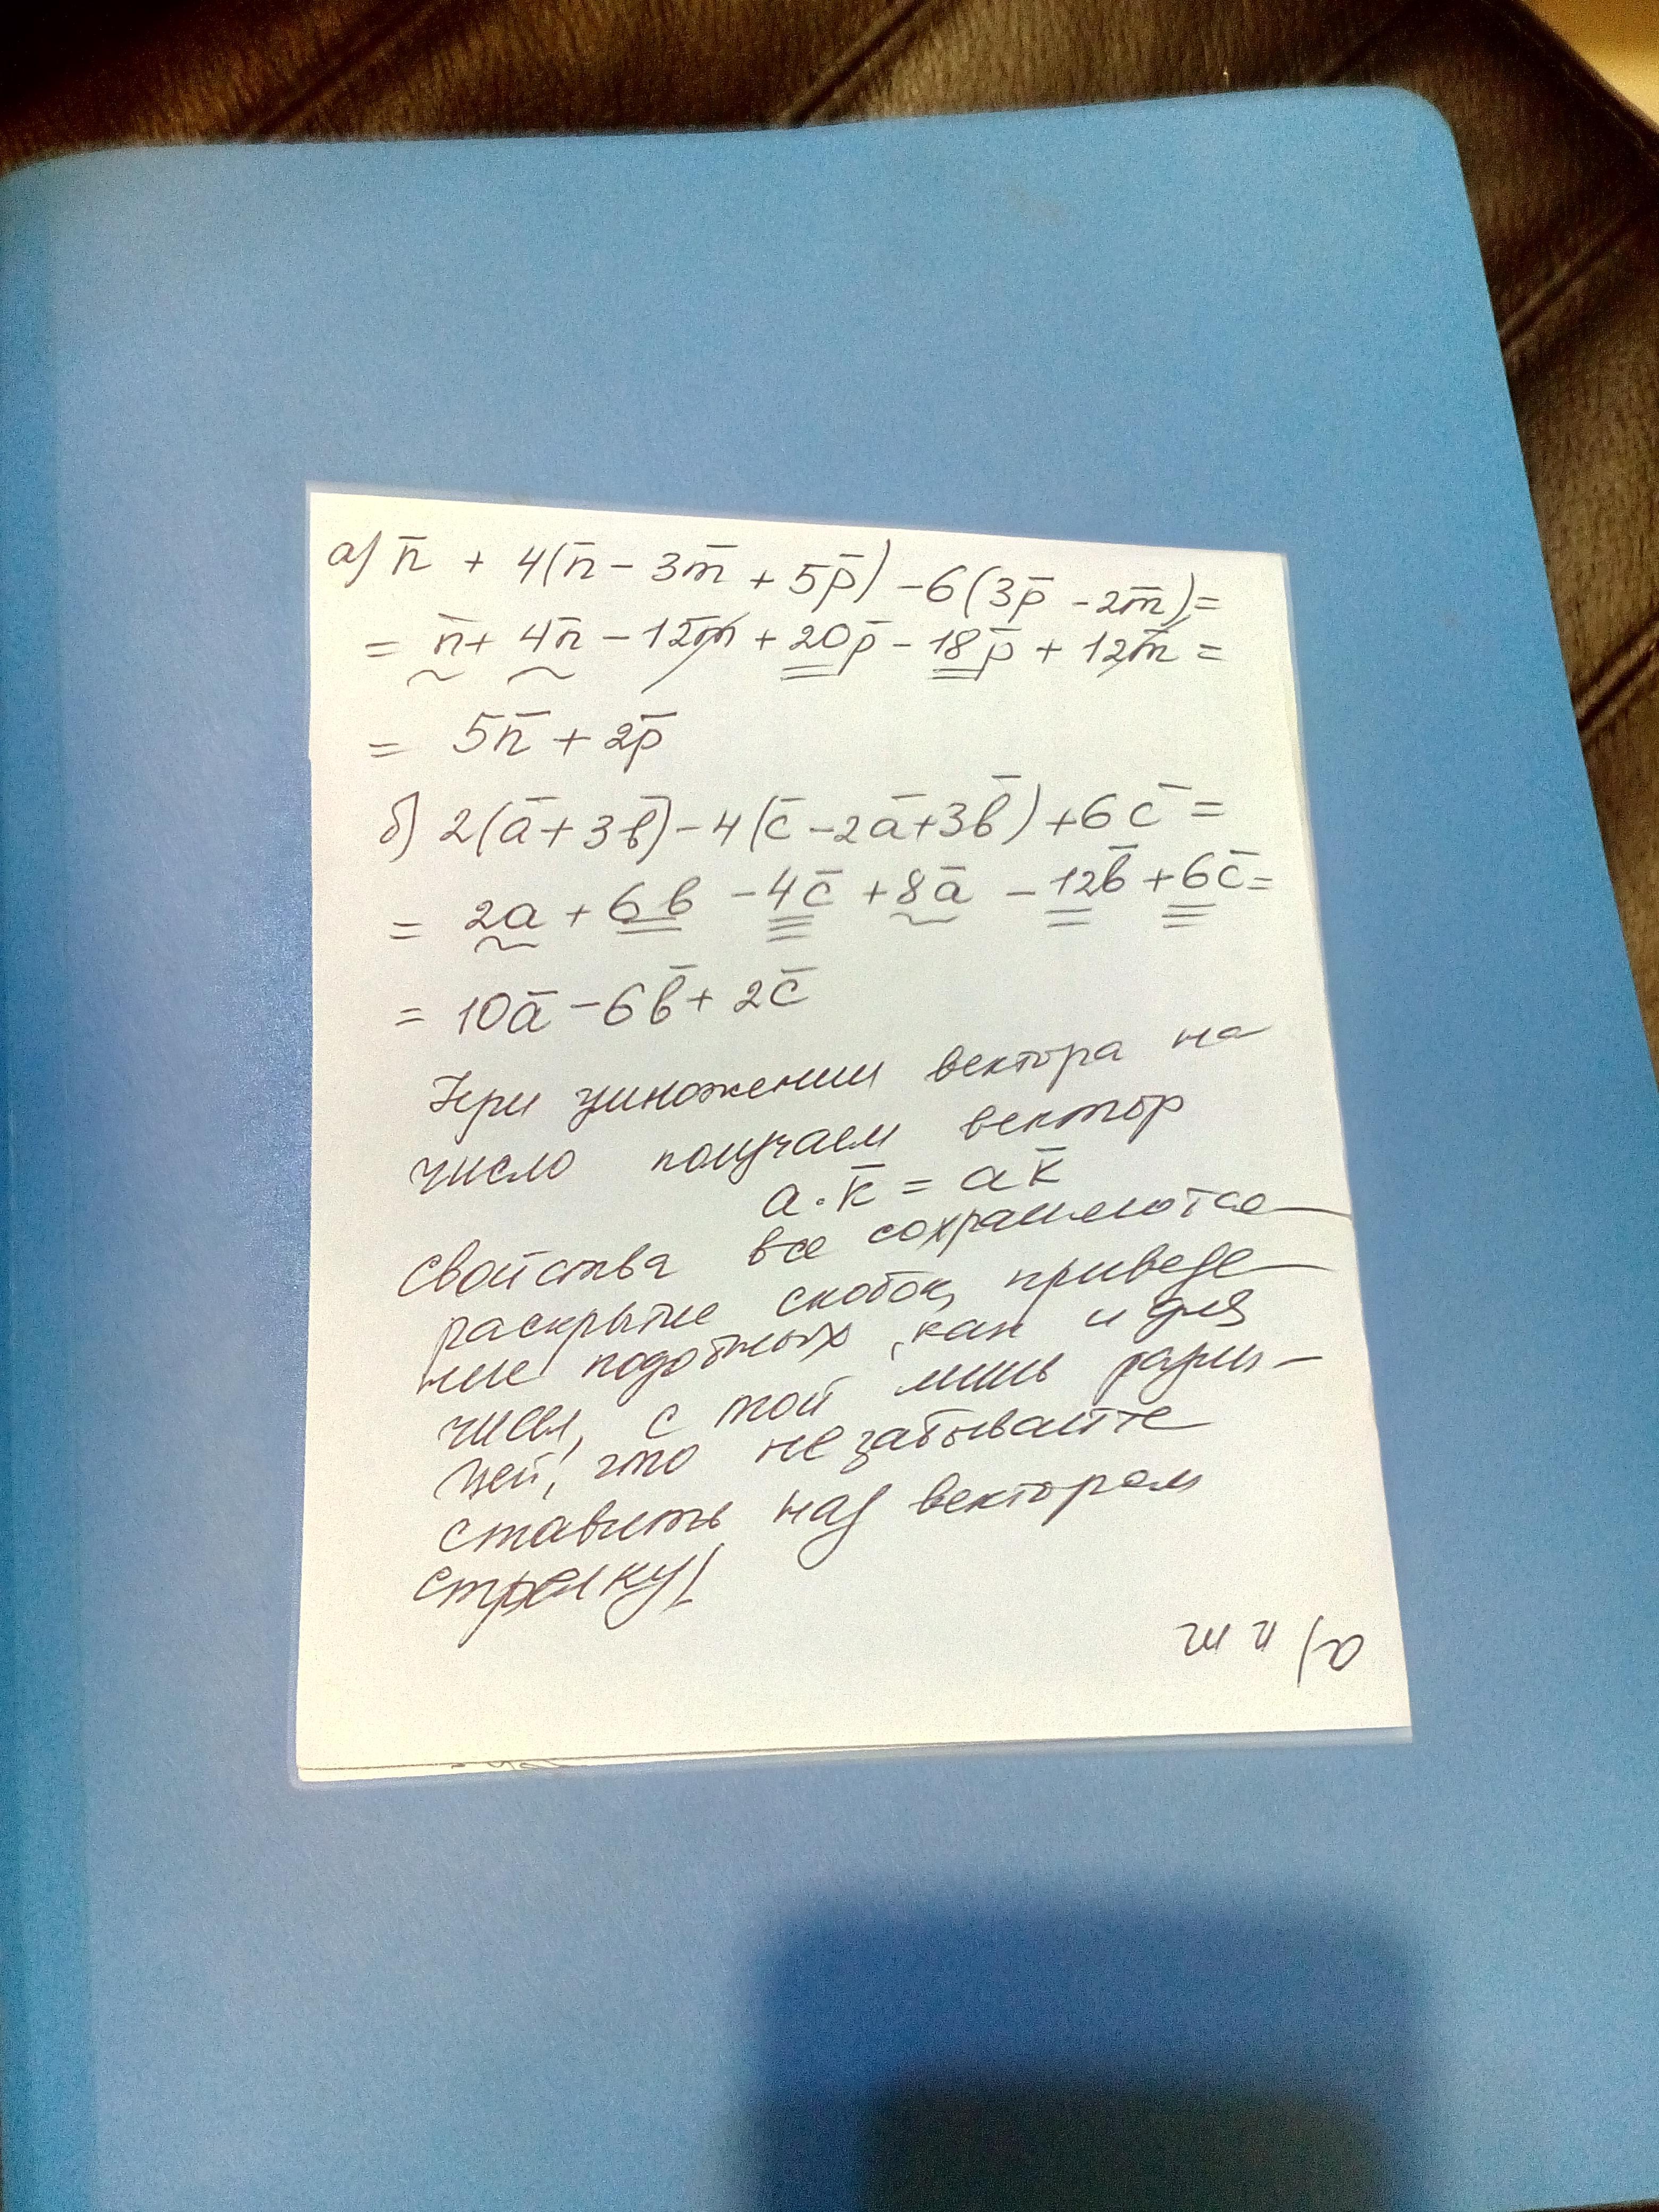 а) n̄ + 4(n̄ - 3m̄ + 5p̄) - 6(3p̄ - 2m̄) =
= n̄ + 4n̄ - 12m̄ + 20p̄ - 18p̄ + 12m̄ =
= 5n̄ + 2p̄
б) 2(ā + 3в̄) - 4(c̄ - 2ā + 3в̄) + 6c̄ =
= 2a + 6в - 4c̄ + 8ā - 12в̄ + 6c̄ =
= 10ā - 6в̄ + 2c̄
При умножении вектора на
число получаем вектор
a · k̄ = a k̄
свойства все сохраняются
раскрытие скобок, приведе-
ние подобных, как и для
чисел, с той лишь разни-
цей, что не забывайте
ставить над вектором
стрелку!
а) n m